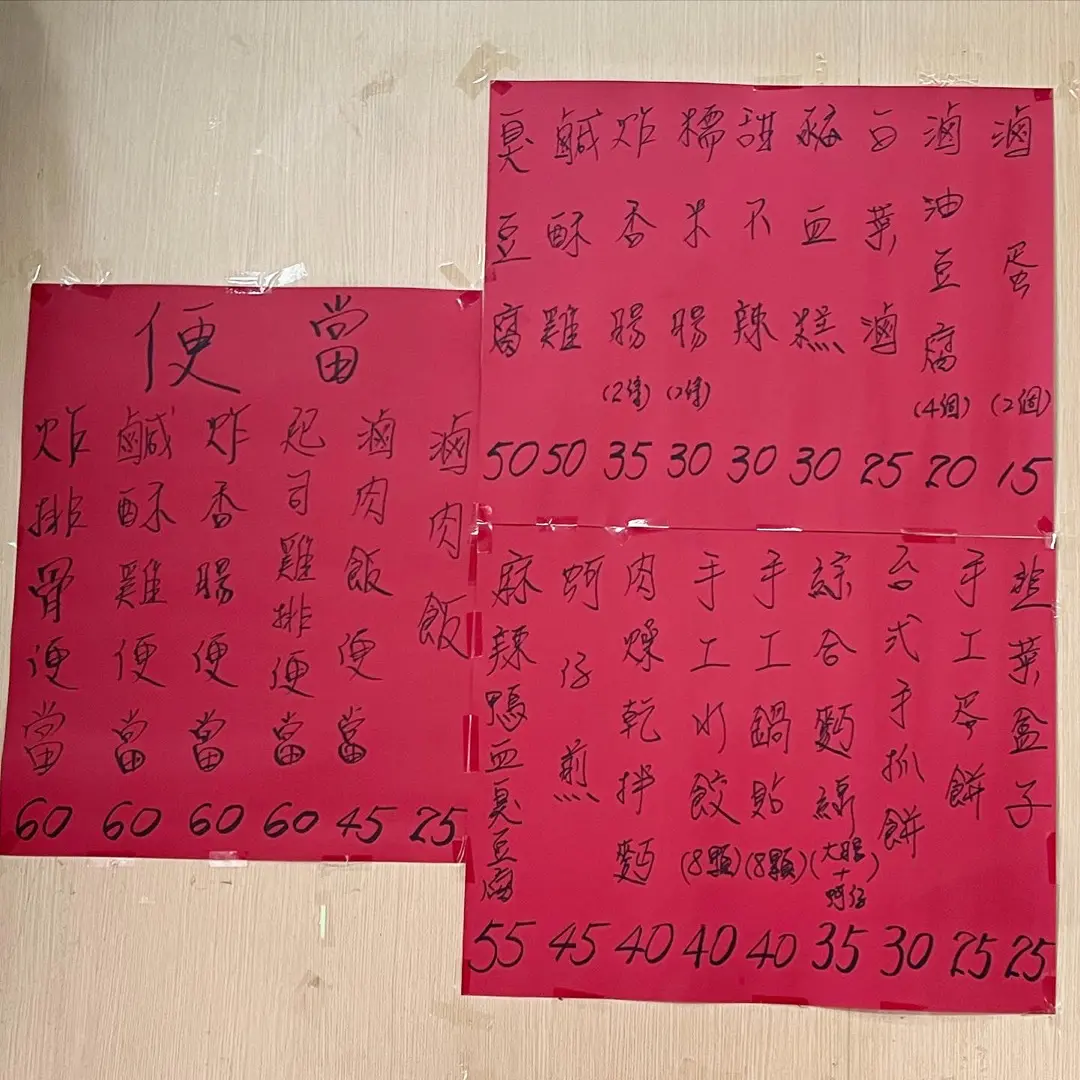 滷蛋(2個) 15
滷油豆腐(4個) 20
白菜滷 25
豬血糕 30
甜不辣 30
糯米腸(2條) 30
炸香腸(2條) 35
鹹酥雞 50
臭豆腐 50
韮菜盒子 25
手工蛋餅 25
台式手抓餅 30
綜合麵線(大腸+蚵仔) 35
手工鍋貼(8顆) 40
手工水餃(8顆) 40
肉燥乾拌麵 40
蚵仔煎 45
麻辣鴨血臭豆腐 55
便當
滷肉飯 25
滷肉飯便當 45
起司雞排便當 60
炸香腸便當 60
鹹酥雞便當 60
炸排骨便當 60